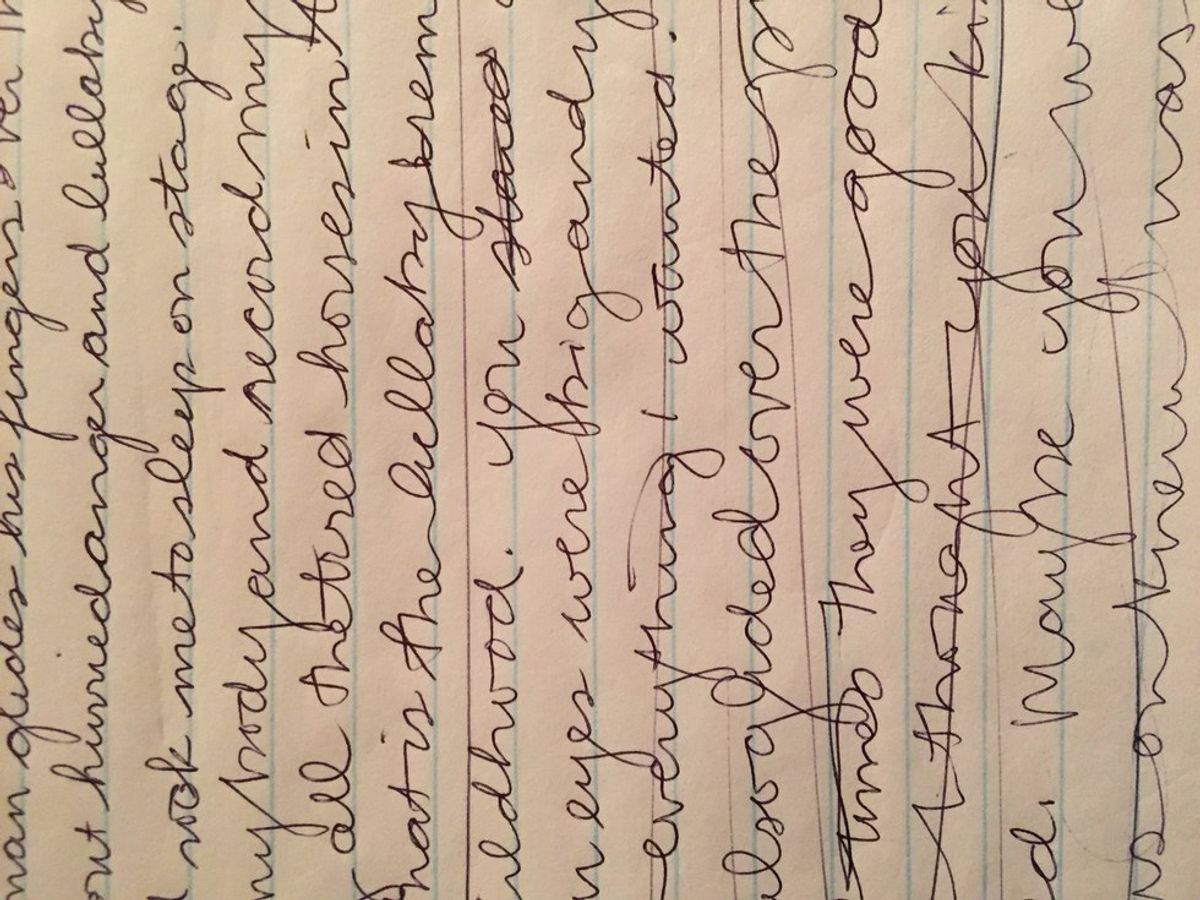 man glides his fingers over
out hurried anger and lullaby
rock me to sleep on stage.
my body and record my
all the tired horses in
hat is the lullaby
ldhood. you stared
eyes were big and
everything i wanted.
also glided over the
they were good
I thought you
d. Maybe you
knew